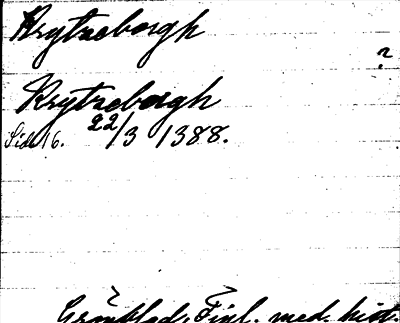 Krytzeborgh
?
Krytzeborgh
Sid. 16. 22/3 1388.
Grönblad, Finl. med. hist.